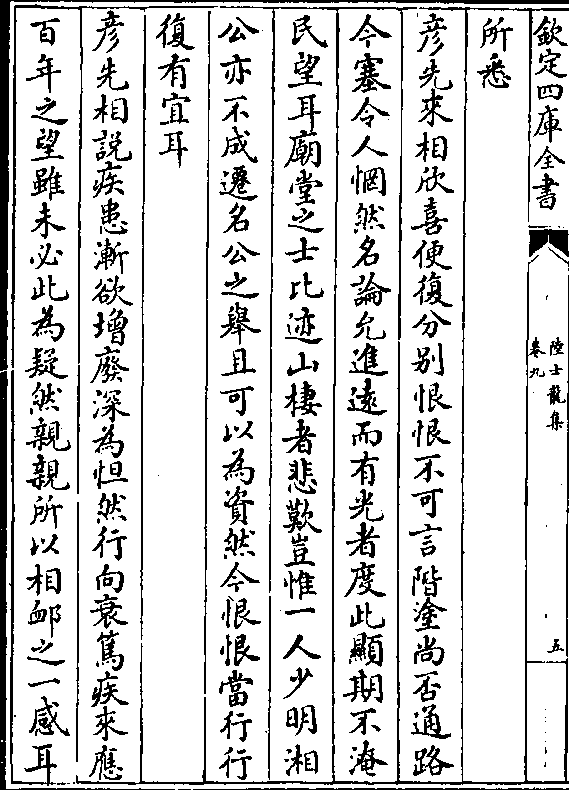 欽定四庫全書
陸士龍集
卷九
五
所悉
彦先來相欣喜便復分别恨恨不可言階塗尚否通路
今塞令人惘然名論允進遠而有光者度此顯期不淹
民望耳廟堂之士比迹山棲者悲歎豈惟一人少明湘
公亦不成遷名公之舉且可以為資然今恨恨當行行
復有宜耳
彦先相說疾患漸欲增廢深為怛然行向衰篤疾來應
百年之望雖未必此為疑然親親所以相衈之一感耳